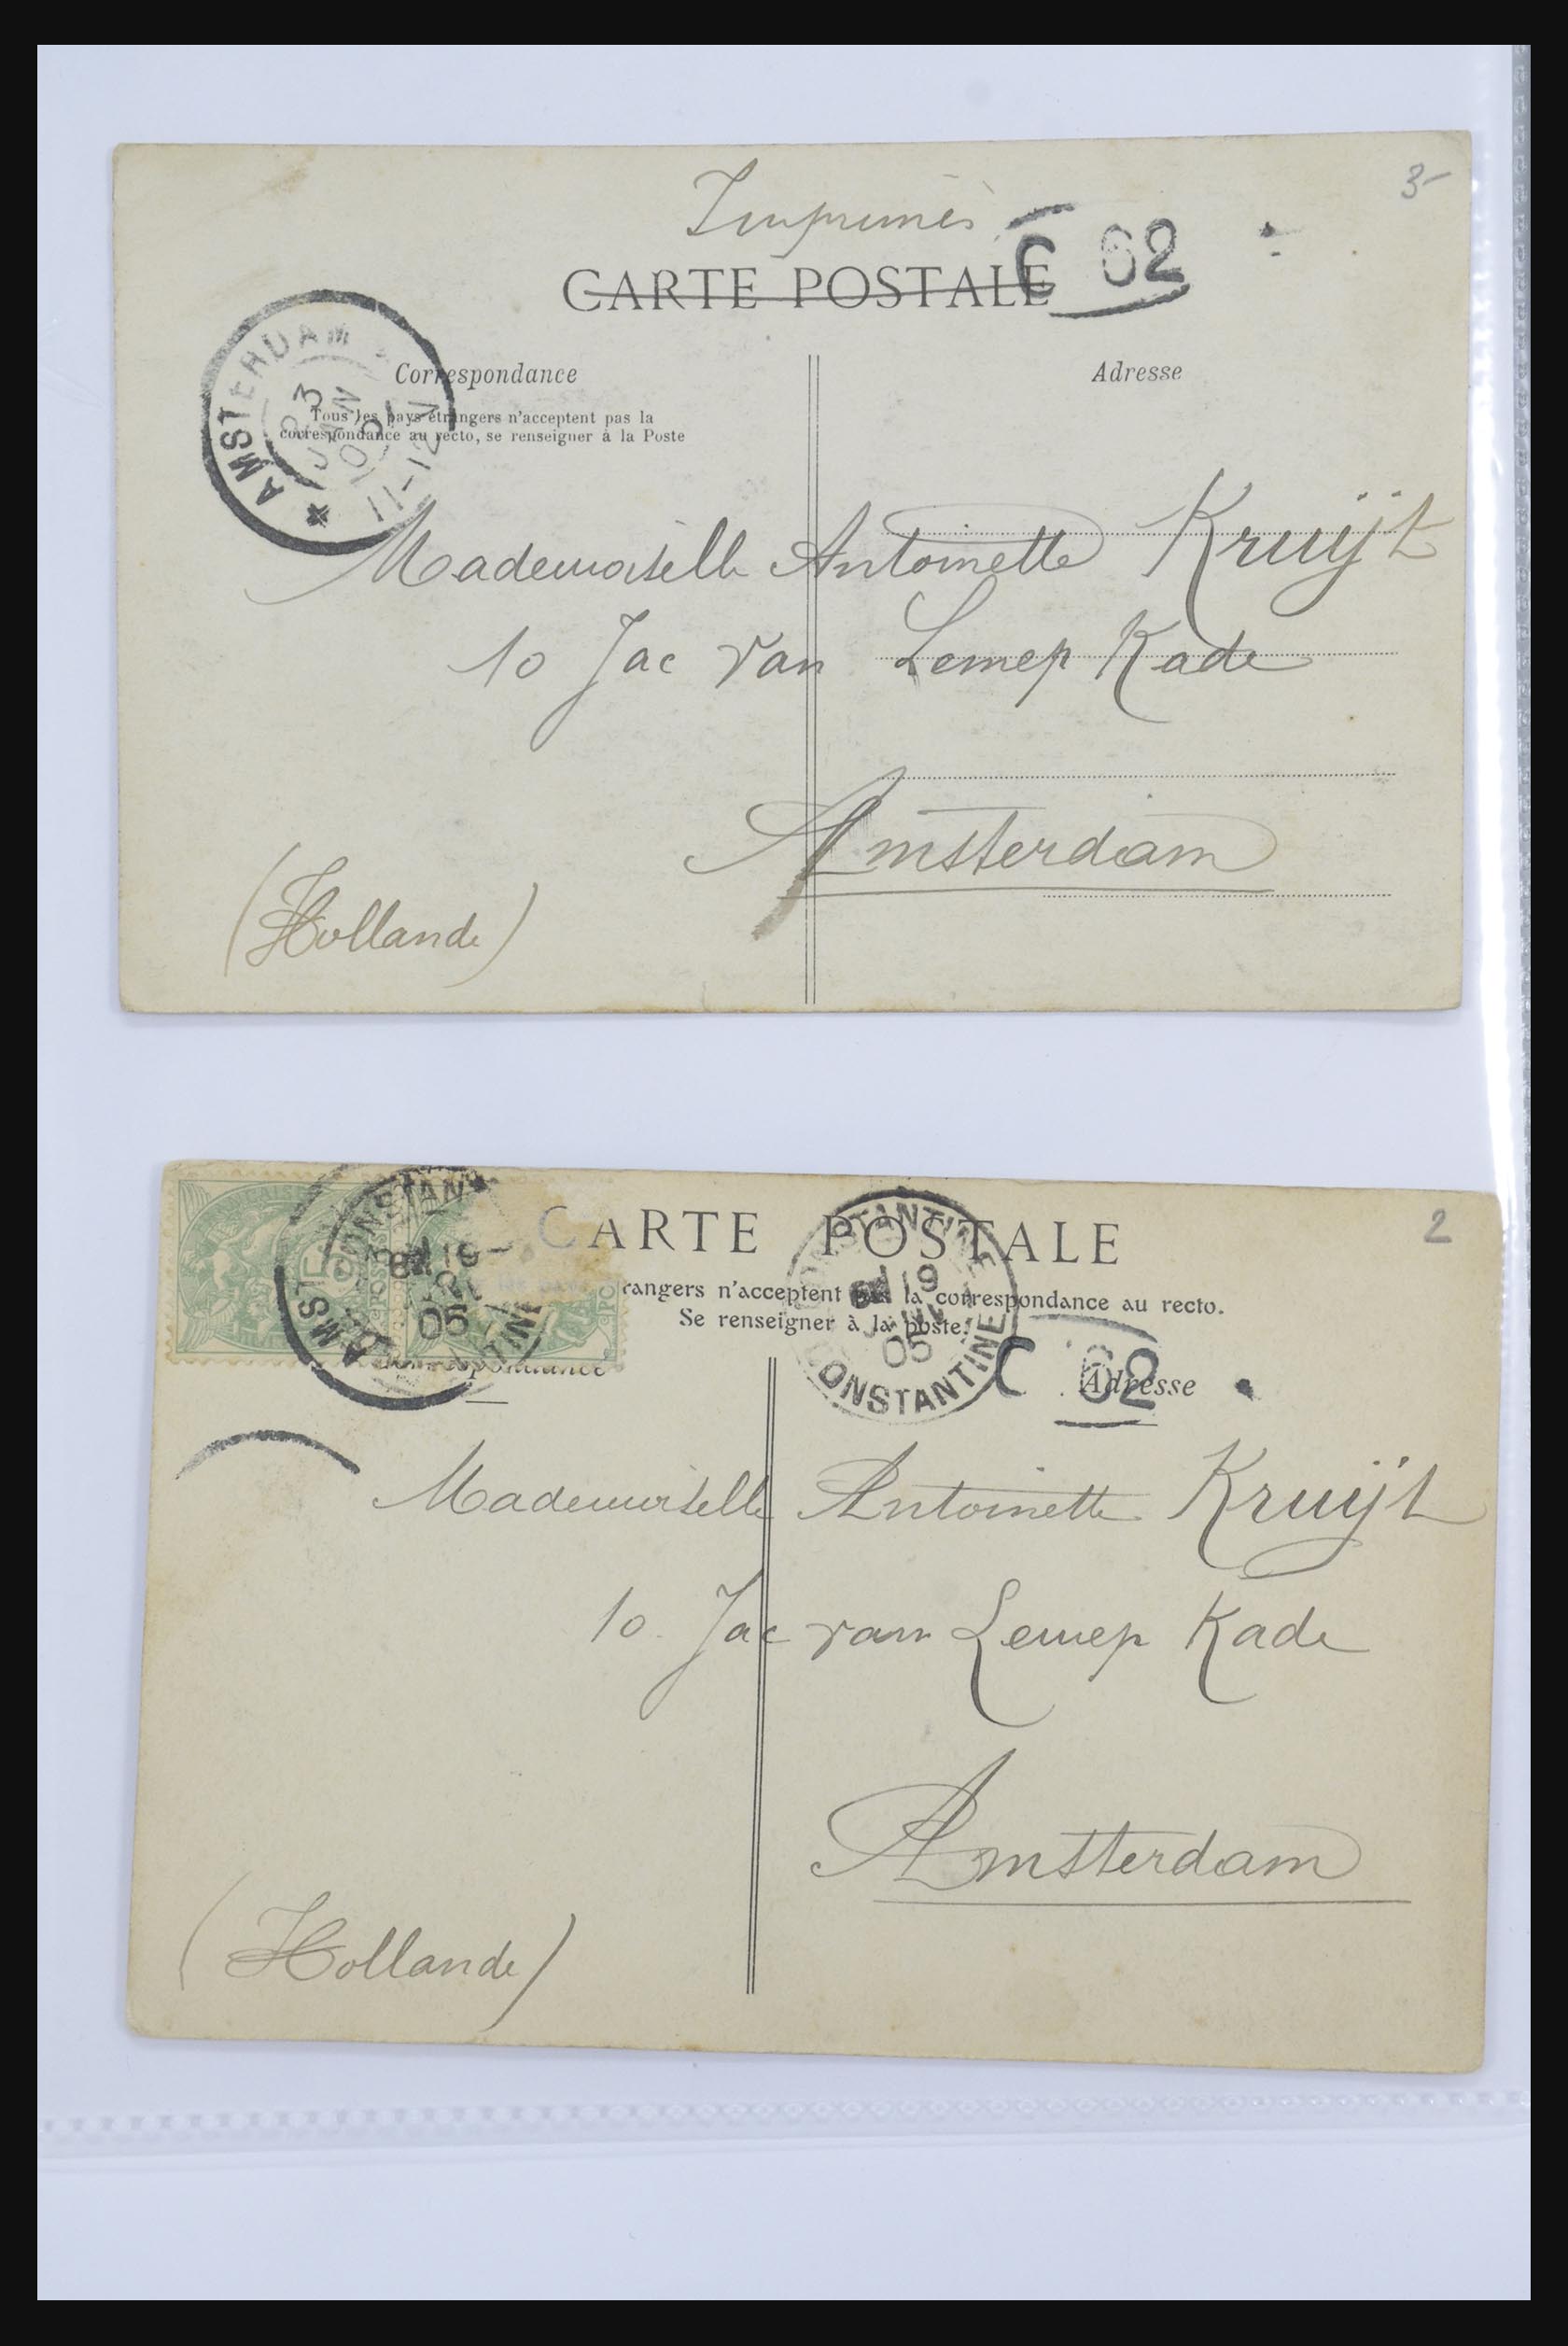 3-
Imprimés
CARTE POSTALE
C 62
AMSTERDAM
23 JAN 05
11-12 V
Correspondance
Adresse
Tous les pays étrangers n'acceptent pas la
correspondance au recto, se renseigner à la Poste
Mademoiselle Antoinette Kruijt
10 Jac Van Lennep Kade
Amsterdam
(Hollande)
2
CARTE POSTALE
rangers n'acceptent la correspondance au recto.
Se renseigner à la poste.
CONSTANTINE
19
05
CONSTANTINE
CONSTANTINE
19
05
CONSTANTINE
C 62
Correspondance
Adresse
Mademoiselle Antoinette Kruijt
10. Jac van Lennep Kade
Amsterdam
(Hollande)